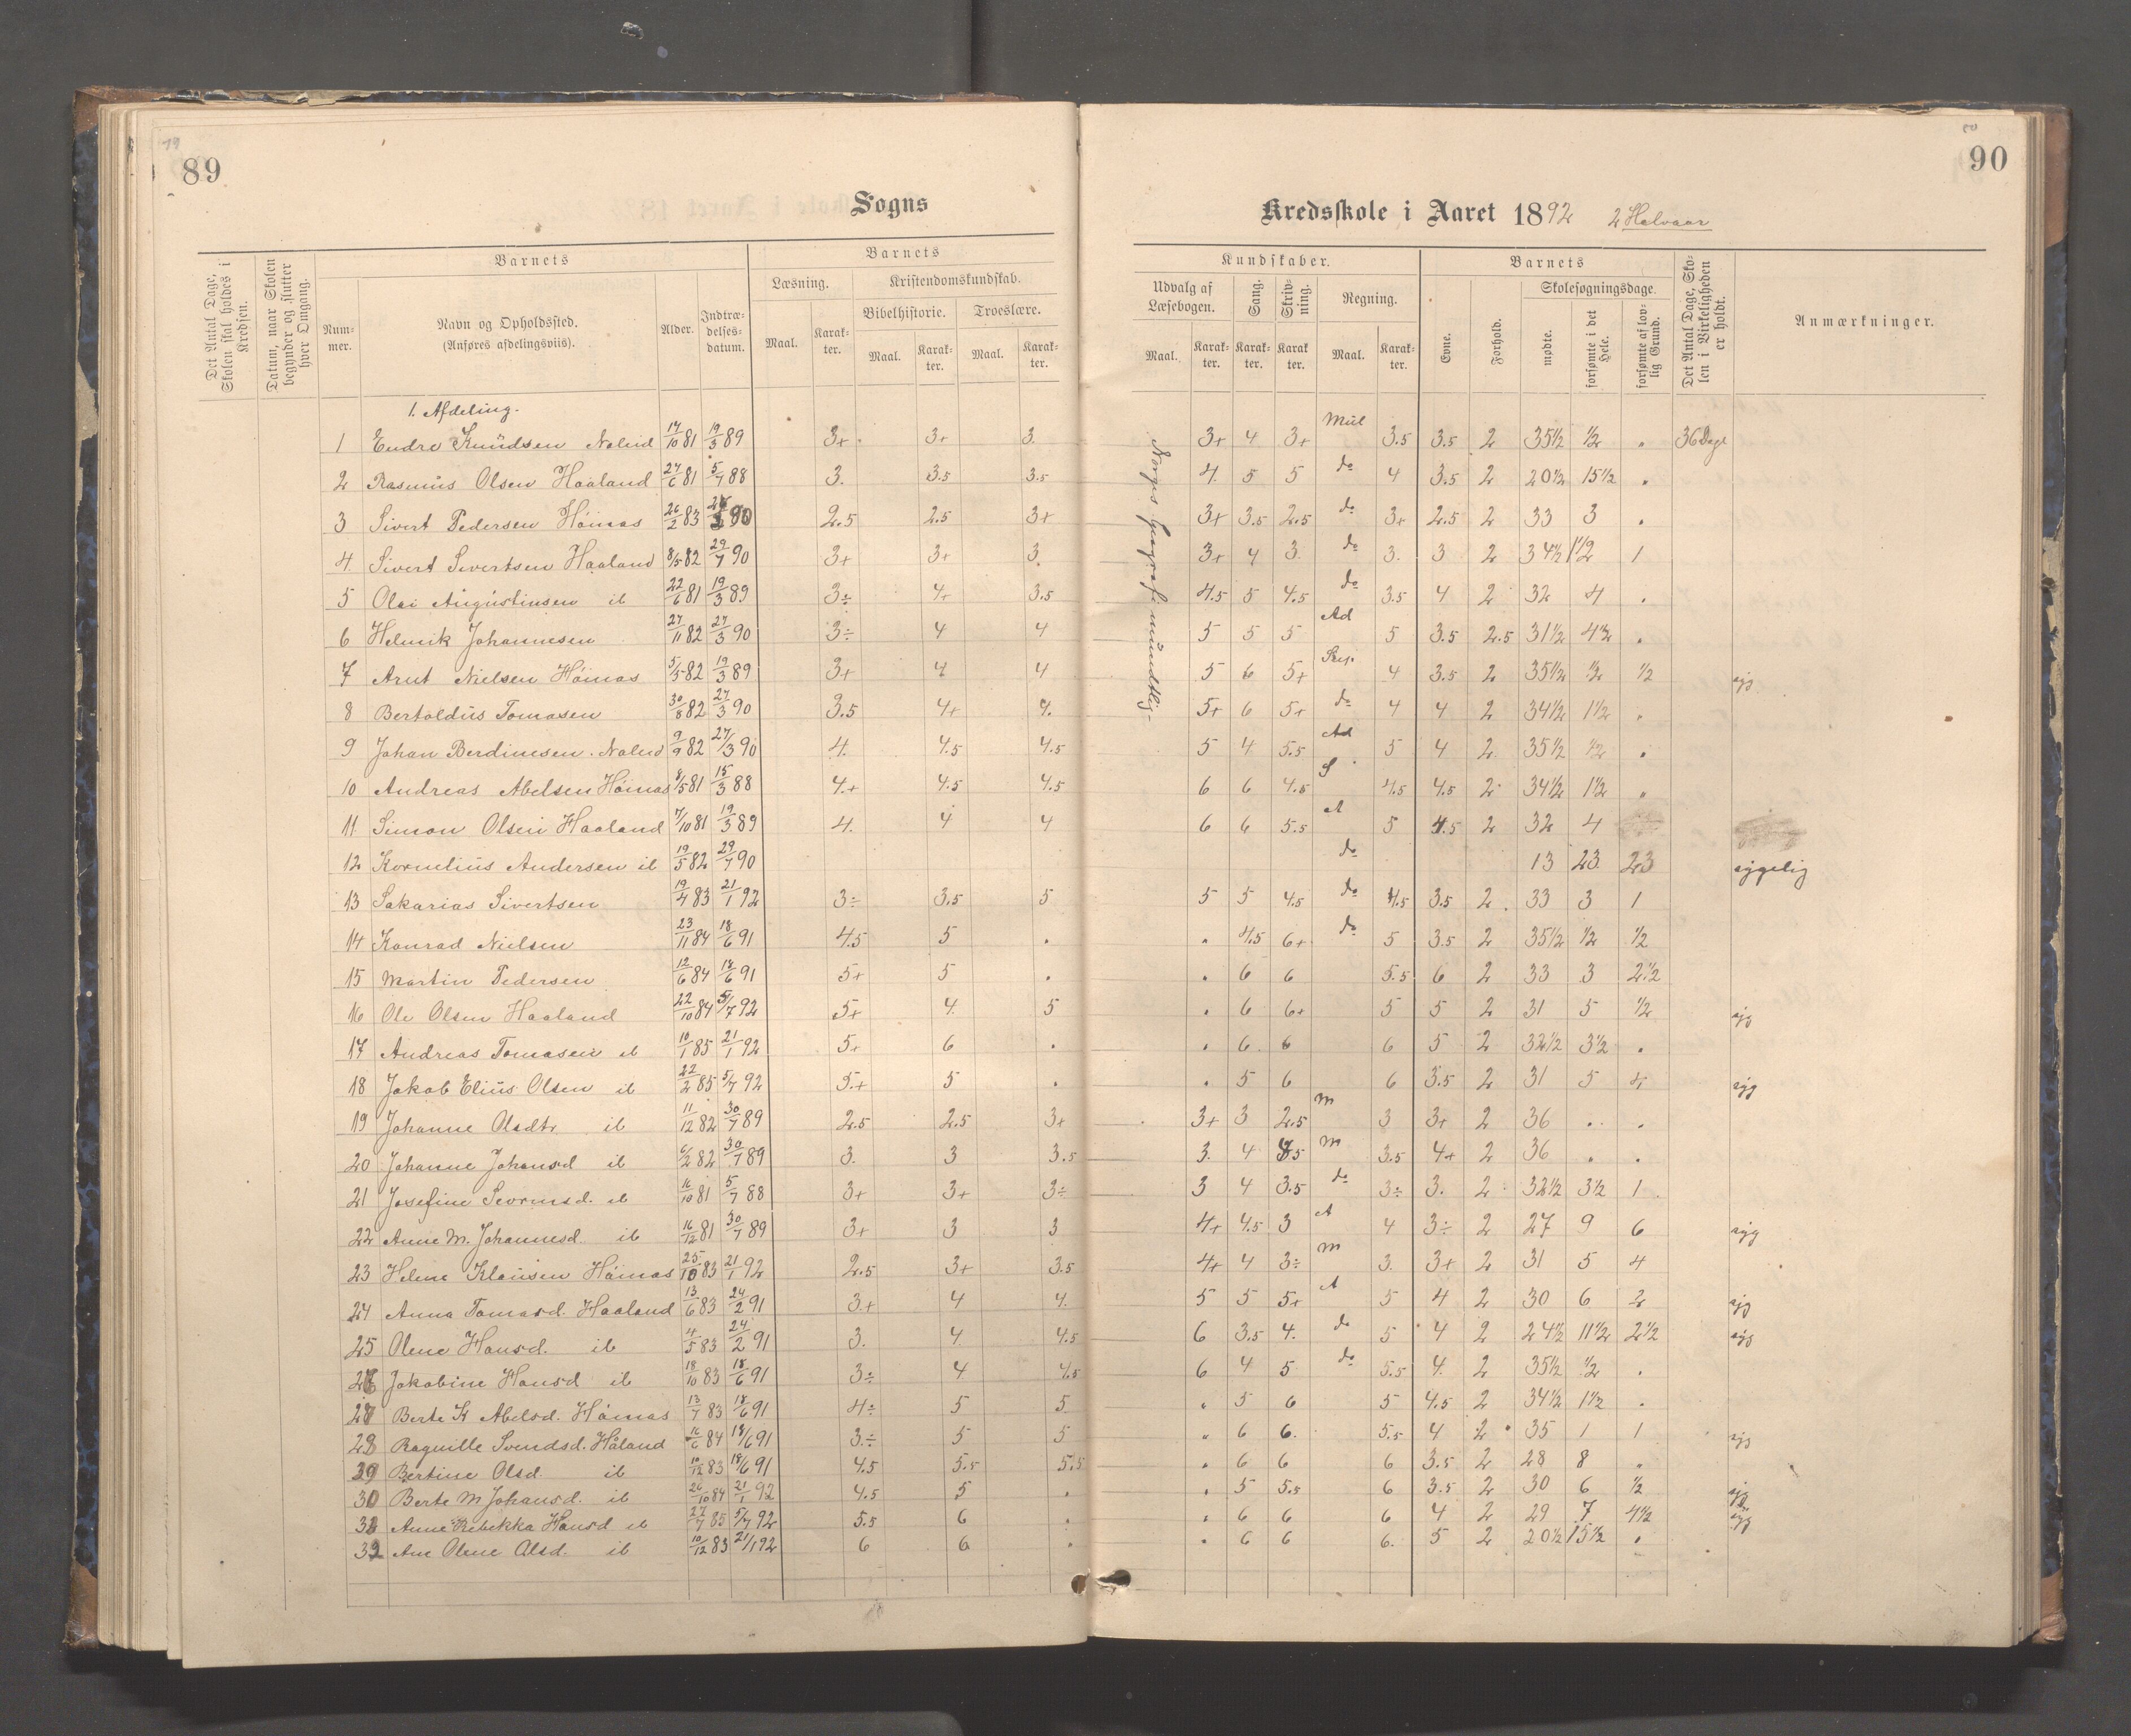 89
Sogns
Det Antal Dage, Skolen skal holdes i Kredsen.
Datum, naar Skolen begynder og slutter hver Omgang.
Barnets
Barnets
Num-mer.
Navn og Opholdssted. (Anføres afdelingsviis).
Alder.
Indtræ-delses-datum.
Læsning.
Kristendomskundskab.
Bibelhistorie.
Troeslære.
Maal. Karak-ter. Maal. Karak-ter. Maal. Karak-ter.
1. Afdeling.
1 Endre Knudsen 14/10 81 19/3 89 3+ 3+ 3.
2 Rasmus Olsen Haaland 27/6 81 5/7 88 3. 3.5 3.5
3 Sivert Pedersen Hóinas 26/2 83 90 2.5 2.5 3+
4. Sivert Sivertsen Haaland 8/5 82 29/7 90 3+ 3+ 3.
5 Olai Augustinsen ib 22/6 81 19/3 89 3÷ 4+ 3.5
6 Helmik Johannesen 27/11 82 27/3 90 3÷ 4 4
7 Arnt Nielsen Hóinas 5/5 82 19/3 89 3+ 4 4
8 Bertoldus Tomasen 30/8 82 27/3 90 3.5 4+ 4.
9 Johan Berdinesen. 9/9 82 27/3 90 4. 4.5 4.5
10 Andreas Abelsen Hóinas 8/5 81 15/3 88 4.+ 4.5 4.5
11. Simon Olsen Haaland 7/10 81 19/3 89 4. 4 4
12 Kornelius Andersen ib 19/5 82 29/7 90
13 Sakarias Sivertsen 19/4 83 21/1 92 3÷ 3.5 5
14 Konrad Nielsen 23/11 84 18/6 91 4.5 5 .
15 Martin Pedersen 12/6 84 18/6 91 5+ 5 .
16 Ole Olsen Haaland 22/10 84 5/7 92 5+ 4. 5
17 Andreas Tomasen ib 10/1 85 21/1 92 5+ 6 .
18 Jakob Elius Olsen ib 22/2 85 5/7 92 5.+ 5 .
19 Johanne Olsdtr ib 11/12 82 30/7 89 2.5 2.5 3+
20 Johanne Johansd ib 6/2 82 30/7 89 3. 3 3.5
21 Josefine ib 16/10 81 5/7 88 3+ 3+ 3÷
22 Anne M. Johannesd. ib 16/12 81 30/7 89 3+ 3 3
23 Helene Klausen Hóinas 25/10 83 21/1 92 2.5 3+ 3.5
24 Anna Tomasd. Haaland 13/6 83 24/2 91 3.+ 4 4.
25 Olene Hansd. ib 4/5 83 24/2 91 3. 4. 4.5
26 Jakobine Hansd ib 18/10 83 18/6 91 3÷ 4 4.5
27 Berte K Abelsd. Hóinas 13/7 83 18/6 91 4÷ 5 5
28 Ragnille Svendsd. Håland 16/6 84 18/6 91 3.÷ 5 5
29 Bertine Olsd. ib 10/12 83 18/6 91 4.5 5.5 5.5
30 Berte M Johansd. ib 26/10 84 21/1 92 4.5 5 .
31 Anne Rebekka Hansd ib 27/7 85 5/7 92 5.5 6 .
32 Ane Olene Olsd. ib 10/12 83 21/1 92 6 6 .
90
Kredsskole i Aaret 1892 2 Halvaar
Kundskaber.
Barnets
Udvalg af Læsebogen.
Sang.
Skriv-ning.
Regning.
Evne.
Forhold.
Skolesøgningsdage.
mødte.
forsømte i det Hele.
forsømte af lov-lig Grund.
Det Antal Dage, Sko-len i Virkeligheden er holdt.
Anmærkninger.
Maal. Karak-ter. Karak-ter. Karak-ter. Maal. Karak-ter.
Norges Geografi mundtlig
3+ 4 3+ Mul 3.5 3.5 2 35½ ½ „ 36 Dage
4. 5 5 do 4 3.5 2 20½ 15½ „
3+ 3.5 2.5 do 3+ 2.5 2 33 3 .
3+ 4 3. do 3. 3 2 34½ 1½ 1
4.5 5 4.5 do 3.5 4 2 32 4 .
5 5 5 Ad 5 3.5 2.5 31½ 4½ .
5 6 5+ 4 3.5 2 35½ ½ ½ syg
5+ 6 5+ do 4 4 2 34½ 1½ „
5 4 5.5 Ad 5 4 2 35½ ½ .
6 6 4.5 S 4.5 4.5 2 34½ 1½ „
6 6 5.5 A 5 4.5 2 32 4
do 13 23 23 sygelig
5 5 4.5 do 4.5 3.5 2. 33 3 1
. 4.5 6+ do 5 3.5 2 35½ ½ ½
. 6 6 5.5 6 2 33 3 2½
. 6 6+ 5 5 2 31 5 ½ syg
. 6. 6 6 5 2 32½ 3½ .
. 5 6 6 3.5 2 31 5 4 syg
3+ 3 2.5 m 3 3+ 2 36 . .
3. 4 3.5 m 3.5 4+ 2 36 . .
3 4 3.5 do 3÷ 3. 2 32½ 3½ 1
4+ 4.5 3 A 4 3÷ 2 27 9 6 syg
4+ 4 3÷ m 3. 3+ 2 31 5 4
5 5 5+ A 5 4 2 30 6 2 syg
6 3.5 4. do 5 4 2 24½ 11½ 2½ syg
6 4 5 do 5.5 4. 2 35½ ½ .
„ 5 6 5 4.5 2 34½ 1½ .
„ 6 6. 5.5 4 2 35 1 1 syg
. 6 6 6 3.5 2 28 8 „
. 5 5.5 6 3.5 2 30 6 ½ syg
. 6 6 6 4 2 29 7 4½ syg
. 6 6 6. 5 2 20½ 15½ .